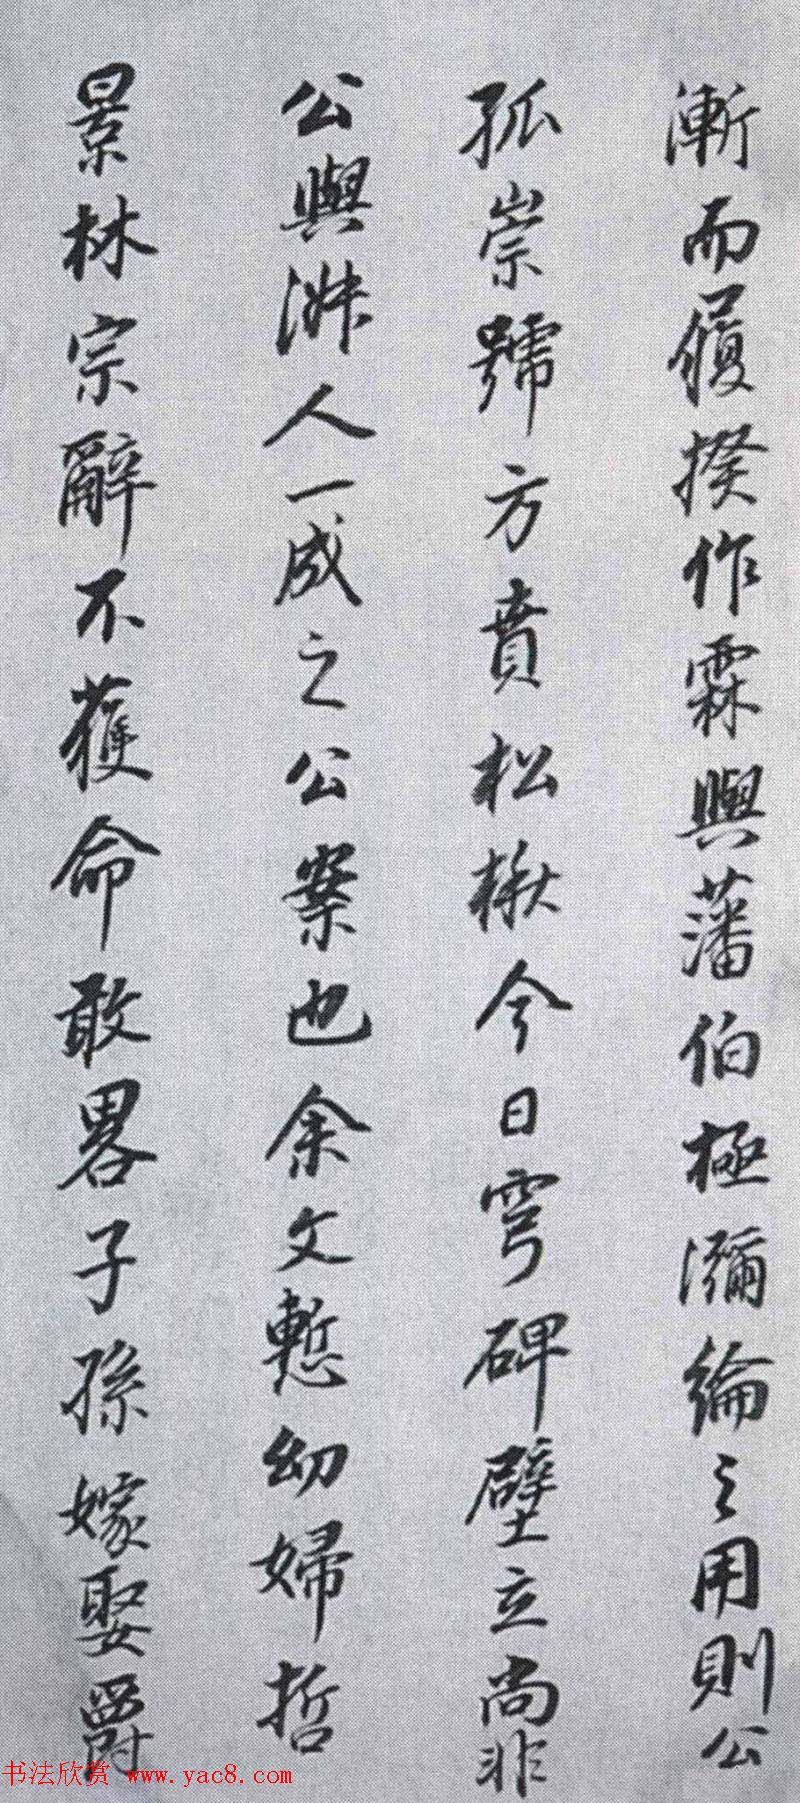 漸而履揆作霖與藩伯極瀰綸之用則公
孤崇號方賁松楸今日穹碑壁立尚非
公與淋人一成之公案也余文慙幼婦哲
景林宗辭不獲命敢畧子孫嫁娶爵
书法欣赏 www.yac8.com